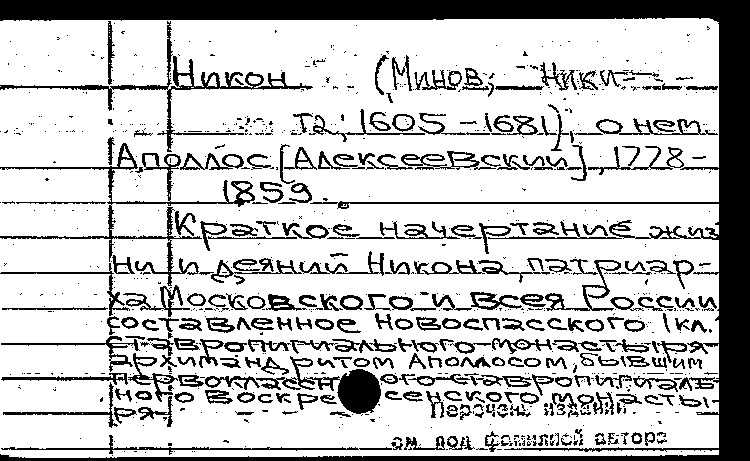 Никон. (Минов, Ники-
та; 1605-1681), о нем.
Аполлос [Алексеевский], 1778-
1859.
Краткое начертание жиз
ни и деяний Никона, патриар-
ха Московского и всея России
составленное Новоспасского 1кл.
ставропигиального монастыря
архимандритом Аполлосом, бывшим
первоклассн ого ставропигиаль
ного Воскре сенского монасты-
ря.
Перечень изданий
см под фамилией автора